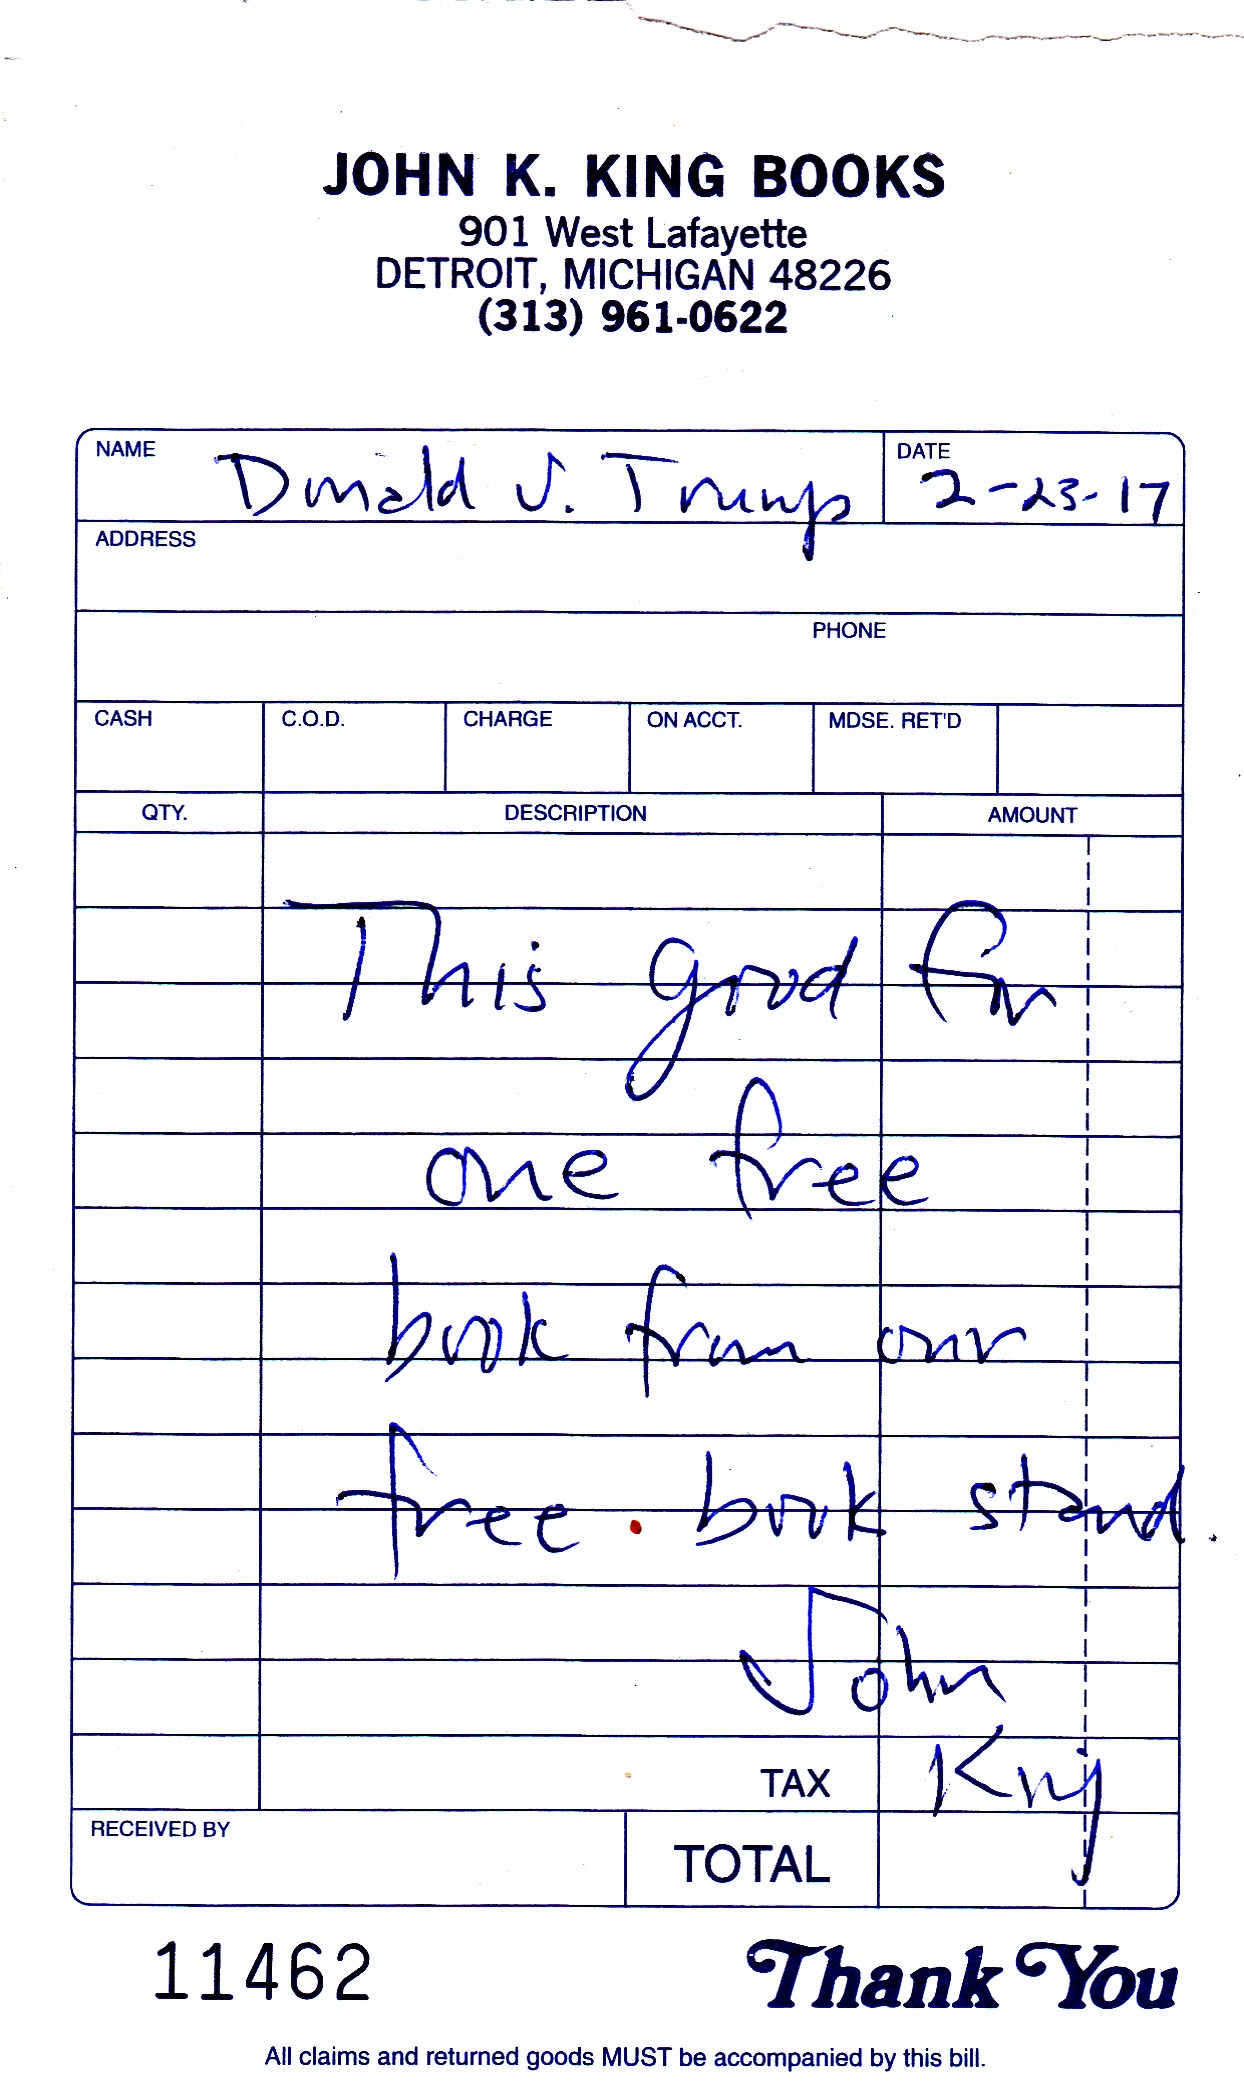 JOHN K. KING BOOKS
901 West Lafayette
DETROIT, MICHIGAN 48226
(313) 961-0622
NAME Donald J. Trump DATE 2-23-17
ADDRESS
PHONE
CASH C.O.D. CHARGE ON ACCT. MDSE. RET'D
QTY. DESCRIPTION AMOUNT
This good for
one free
book from our
free. book stand.
John
King
TAX
RECEIVED BY TOTAL
11462 Thank You
All claims and returned goods MUST be accompanied by this bill.